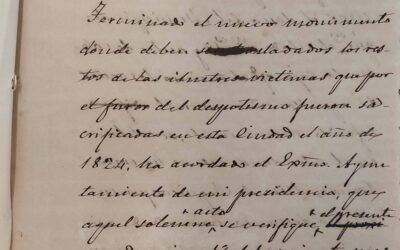 Terminado el nuevo monumento
donde deben ser trasladados los res
tos de las ilustres victimas que por
el furor del despotismo fueron sa
crificadas en esta Ciudad el año de
1824, ha acordado el Exmo. Ayun
tamiento de mi presidencia, que
acto el presente
aquel solemne se verifique